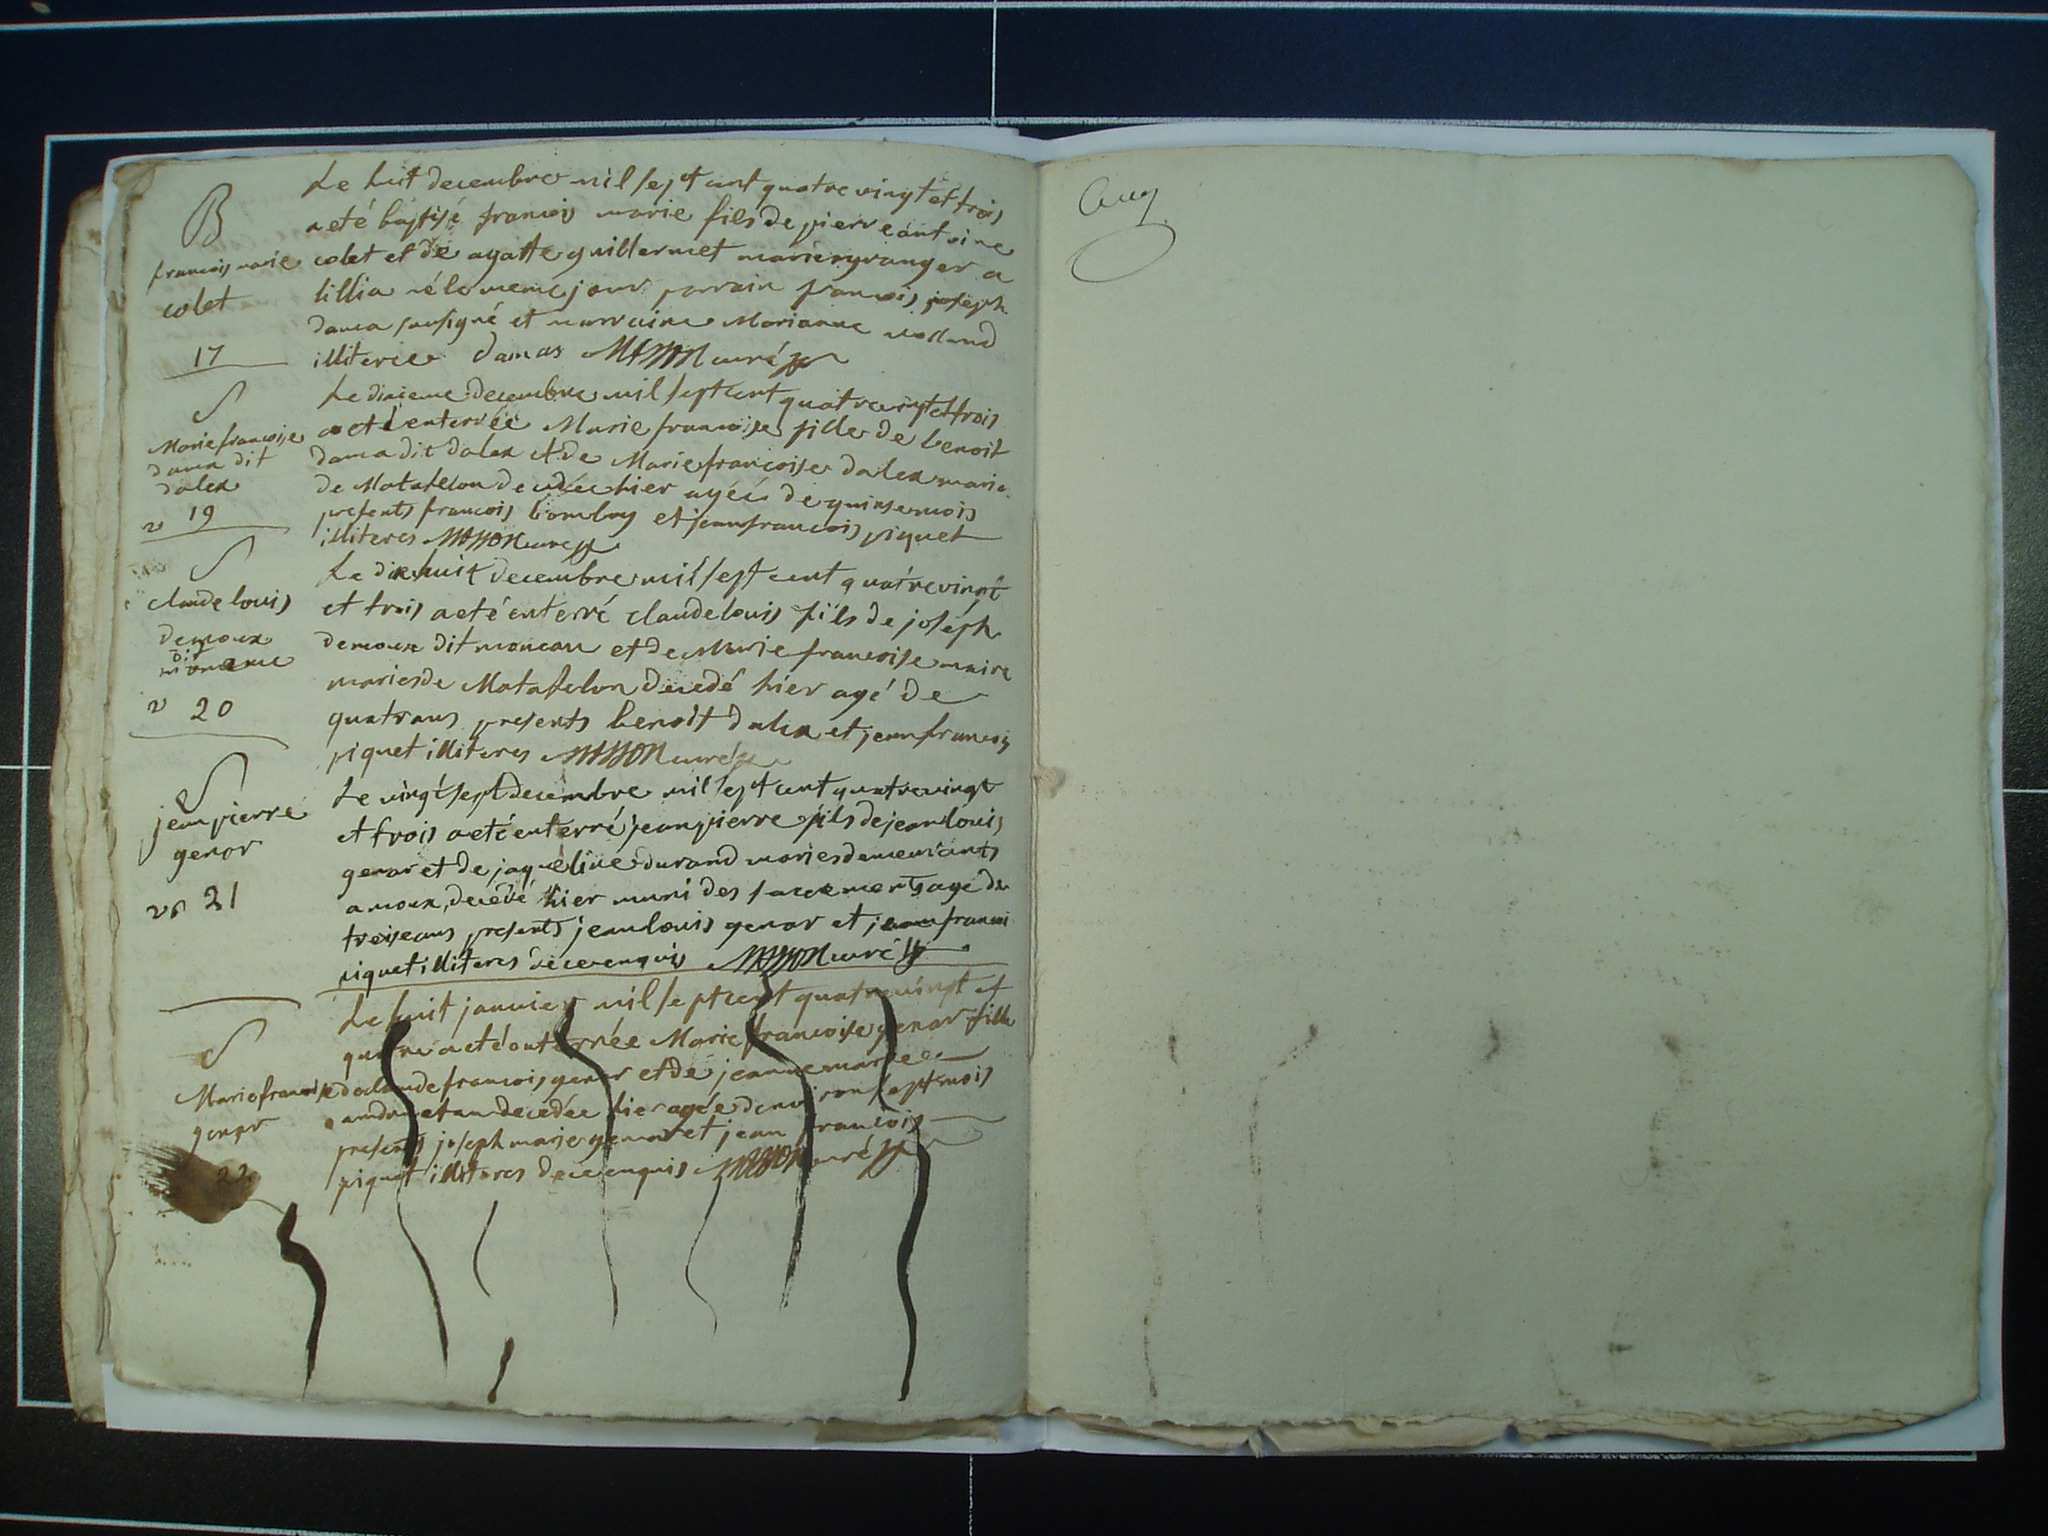 B
francois marie
colet
17
Le huit decembre mil sept cent quatre vingt et trois
a eté baptisé francois marie fils de pierre antoine
colet et de agatte guillermet mariés granger a
lillia né le meme jour parrain francois joseph
dama sousigné et marraine Marianne
illiteree damas MASSON curé
S
Marie francoise
dama dit
dalex
19
Le dixieme decembre mil sept cent quatre vingt et trois
a eté enterrée Marie francoise fille de benoit
dama dit dalex et de Marie francoise dalex marié
de Matafelon decedée hier agée de quinse mois
presents francois bomboy et jean francois piquet
illiteres MASSON curé
S
claude louis
demoux
dit
20
Le dixhuit decembre mil sept cent quatre vingt
et trois a eté enterré claude louis fils de joséph
demoux dit moncau et de Marie francoise maire
mariés de Matafelon decedé hier agé de
quatrans presents benoit dalex et jean francois
piquet illiteres MASSON curé
S
jean pierre
genor
21
Le vingt sept decembre mil sept cent quatre vingt
et trois a eté enterré jean pierre fils de jean louis
genor et de jaqueline durand mariés demeurants
a moux, decédé hier muni des sacrements agé de
treise ans presents jean louis genor et jean francoi
piquet illiteres de ce enquis MASSON curé
S
Marie francoise
genor
22
Le huit janvier mil sept cent quatre vingt et
quatre a eté enterrée Marie francoise genor fille
de claude francois genor et de jeanne marie
decedée hier agée d'environ sept mois
presents joseph marie genor et jean francois
piquet illiteres de ce enquis MASSON curé